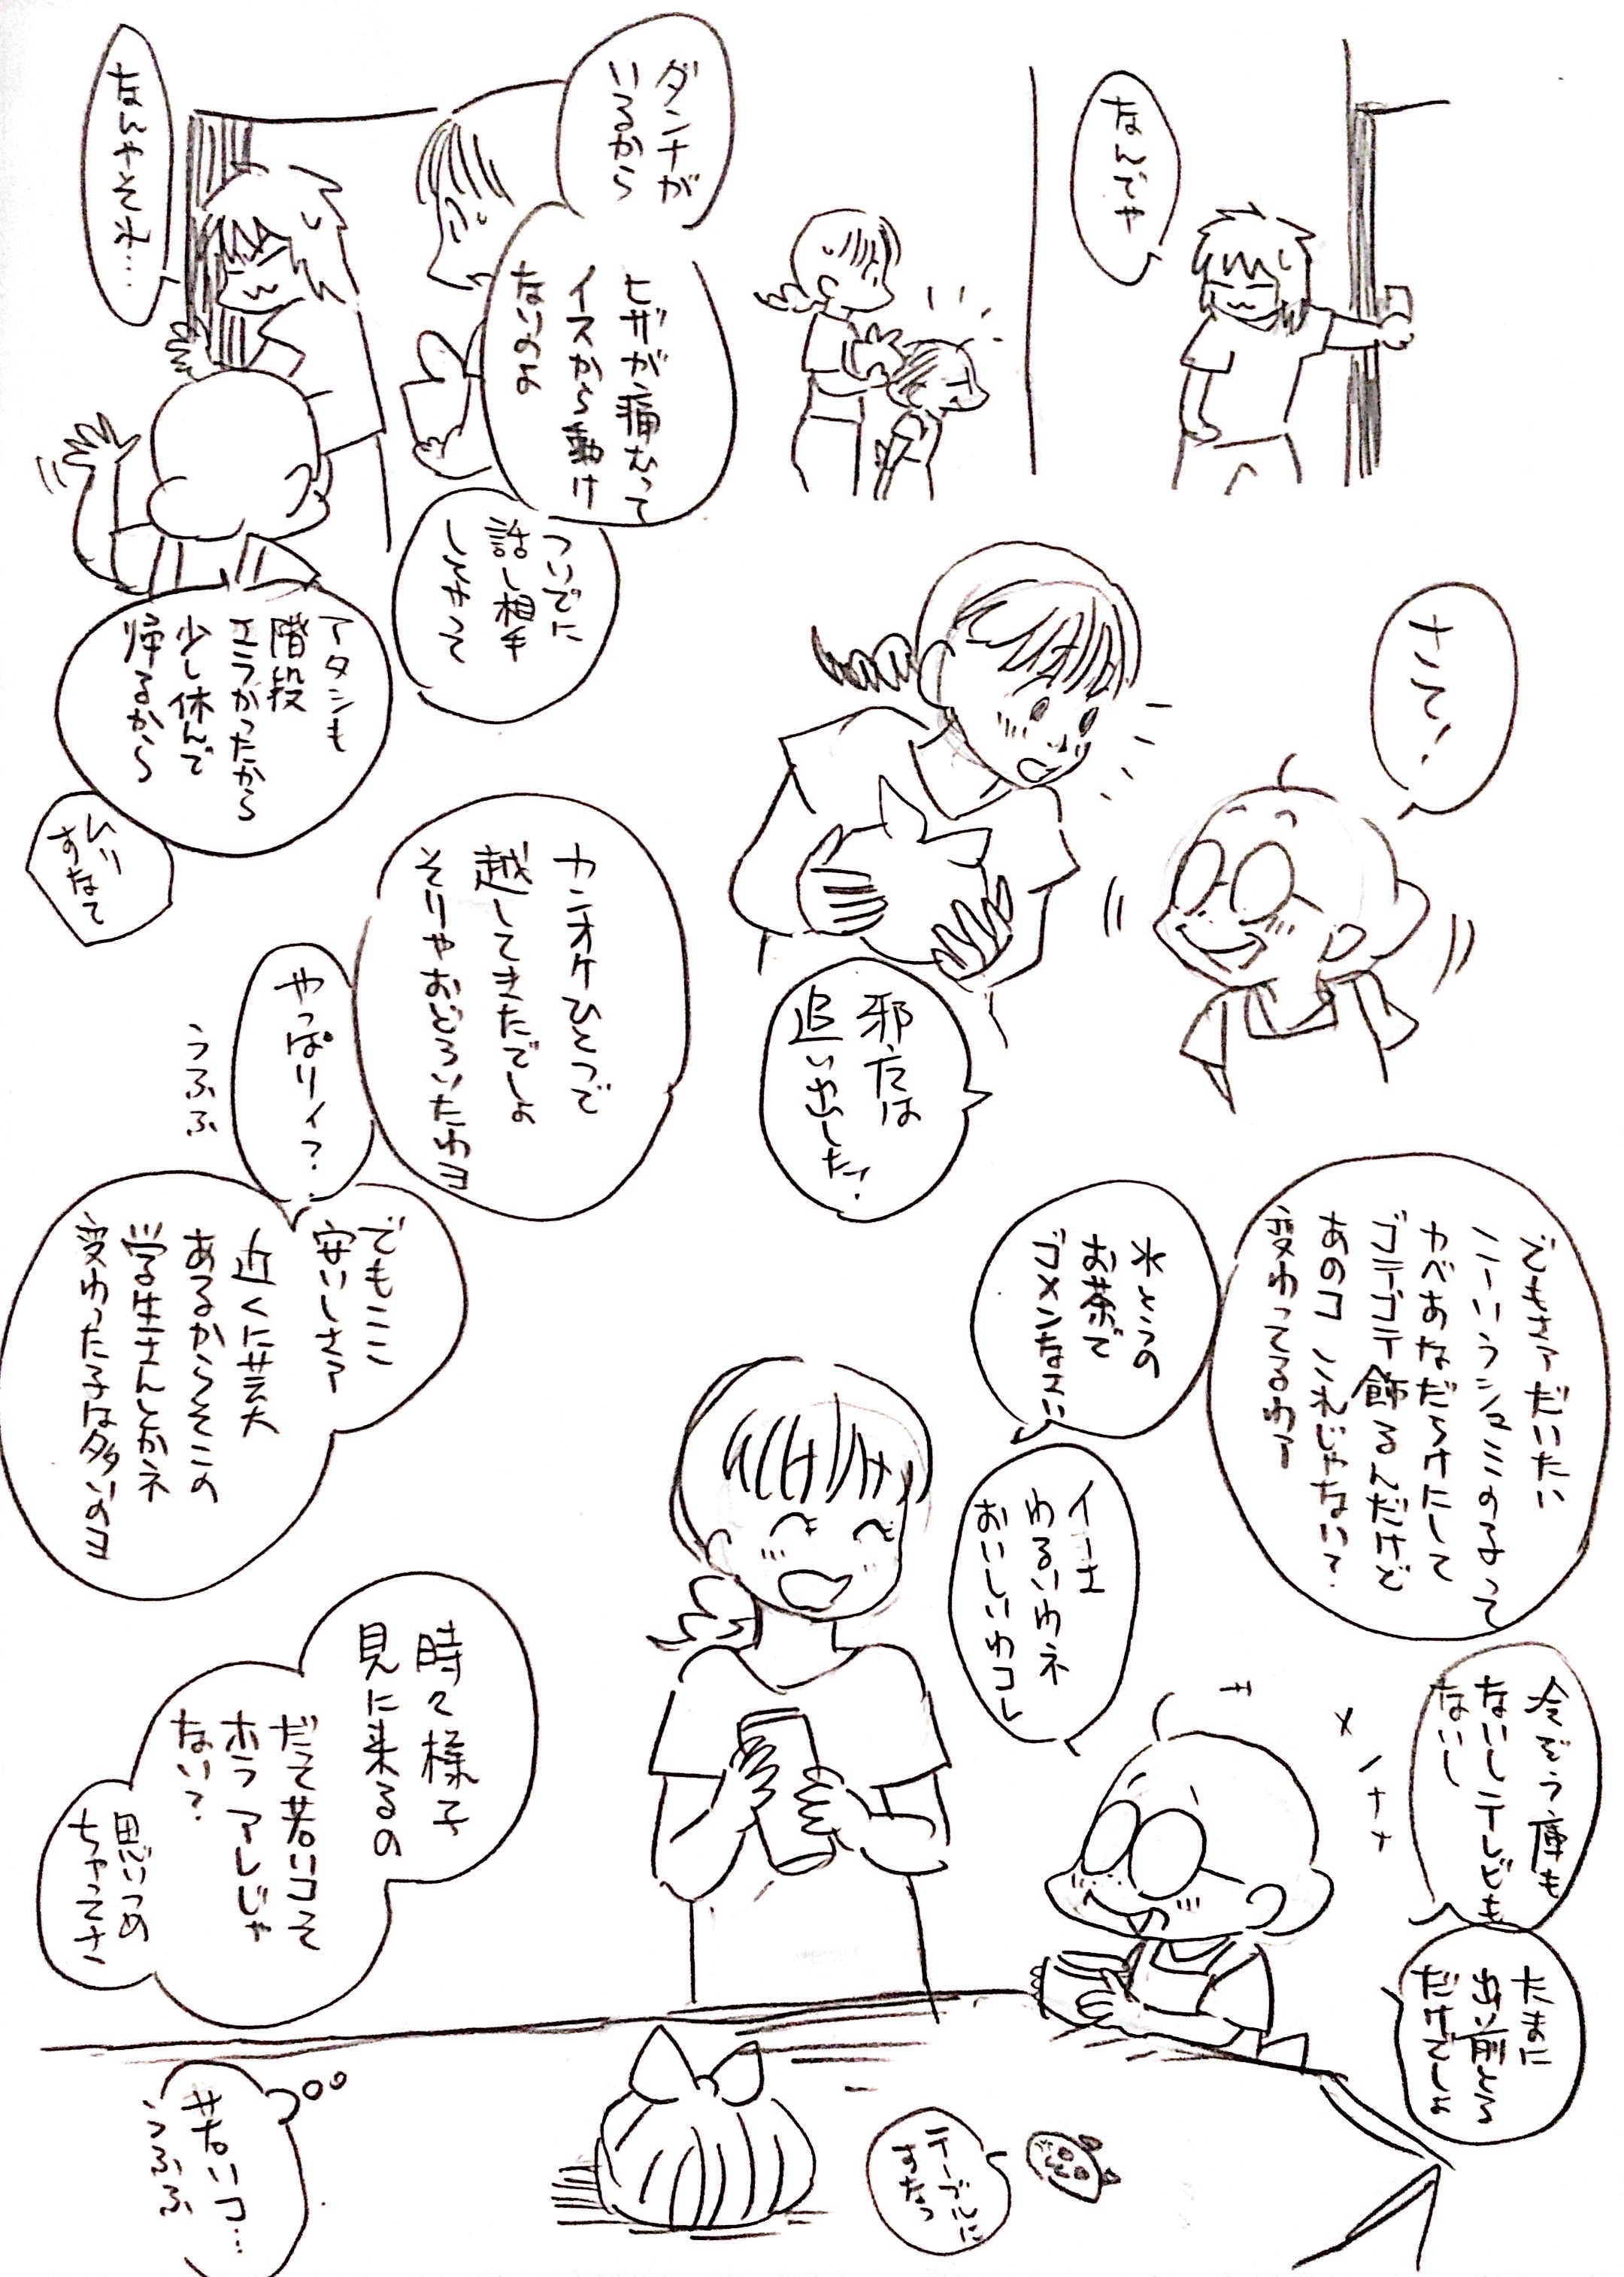 なんでや
ダンナが
いるから
ヒザが痛むって
イスから動け
ないのよ
ついでに
話し相手
したって
なんやそれ…
アタシも
階段
エラかったから
少し休んで
帰るから
ムリ
すなて
さて!
邪魔は
追い出した!
カンオケひとつで
越してきたでしょ
そりゃおどろいたわヨ
やっぱりィ?
うふふ
でもここ
安いしさァ
近くに芸大
あるからそこの
学生さんとかネ
変わった子は多いのヨ
でもさァだいたい
こーいうシュミの子って
カベあなだらけにして
ゴテゴテ飾るんだけど
あのコ これじゃない?
変わってるわァ
水とうの
お茶で
ゴメンなさい
イーエ
わるいわネ
おいしいわコレ
冷ぞう庫も
ないしテレビも
ないし
たまに
出前とる
だけでしょ
時々様子
見に来るの
だって若いコって
ホラ アレじゃ
ない?
思いつめ
ちゃってさ
テーブルに
すなっ
若いコ…
うふふ